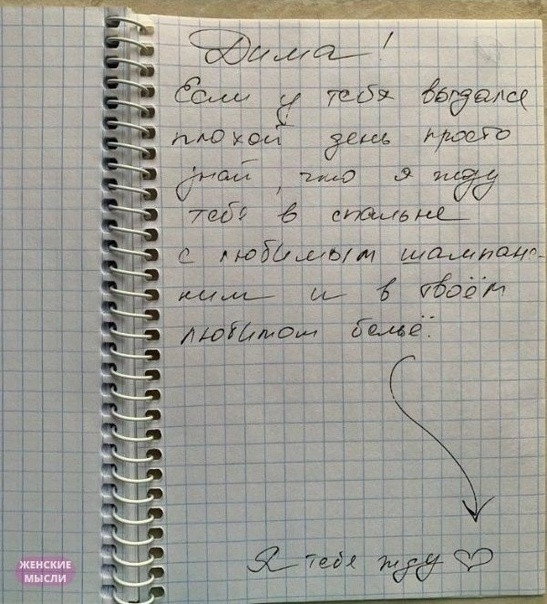 Дима!
Если у тебя выдался
плохой день просто
знай, что я жду
тебя в спальне
с любимым шампанс-
ким и в твоём
любимом бельё.
Я тебя жду ♡
ЖЕНСКИЕ
МЫСЛИ